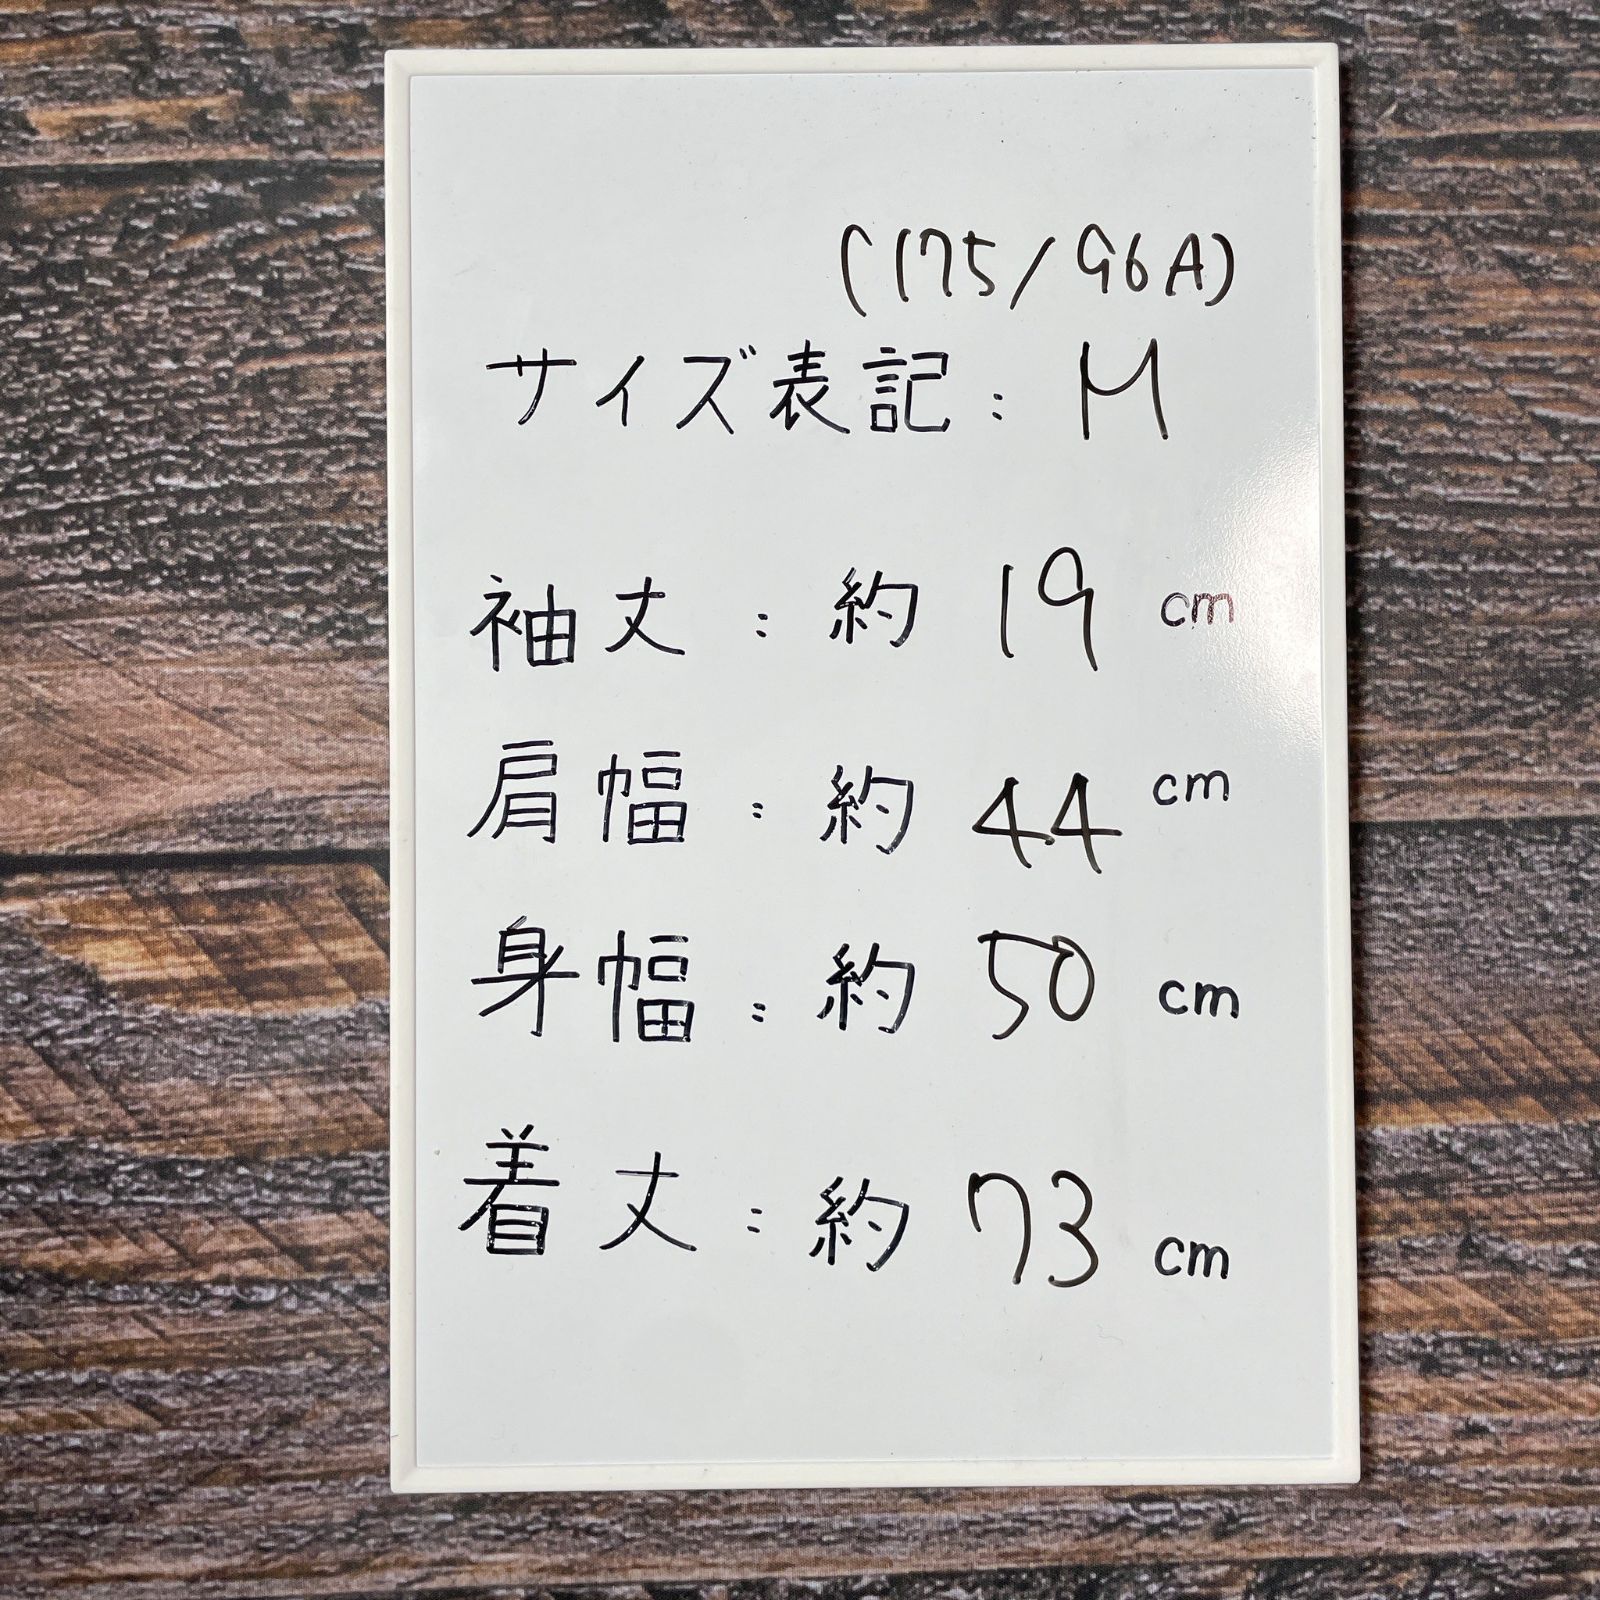 (175/96A)
サイズ表記:M
袖丈:約19cm
肩幅:約44cm
身幅:約50cm
着丈:約73cm